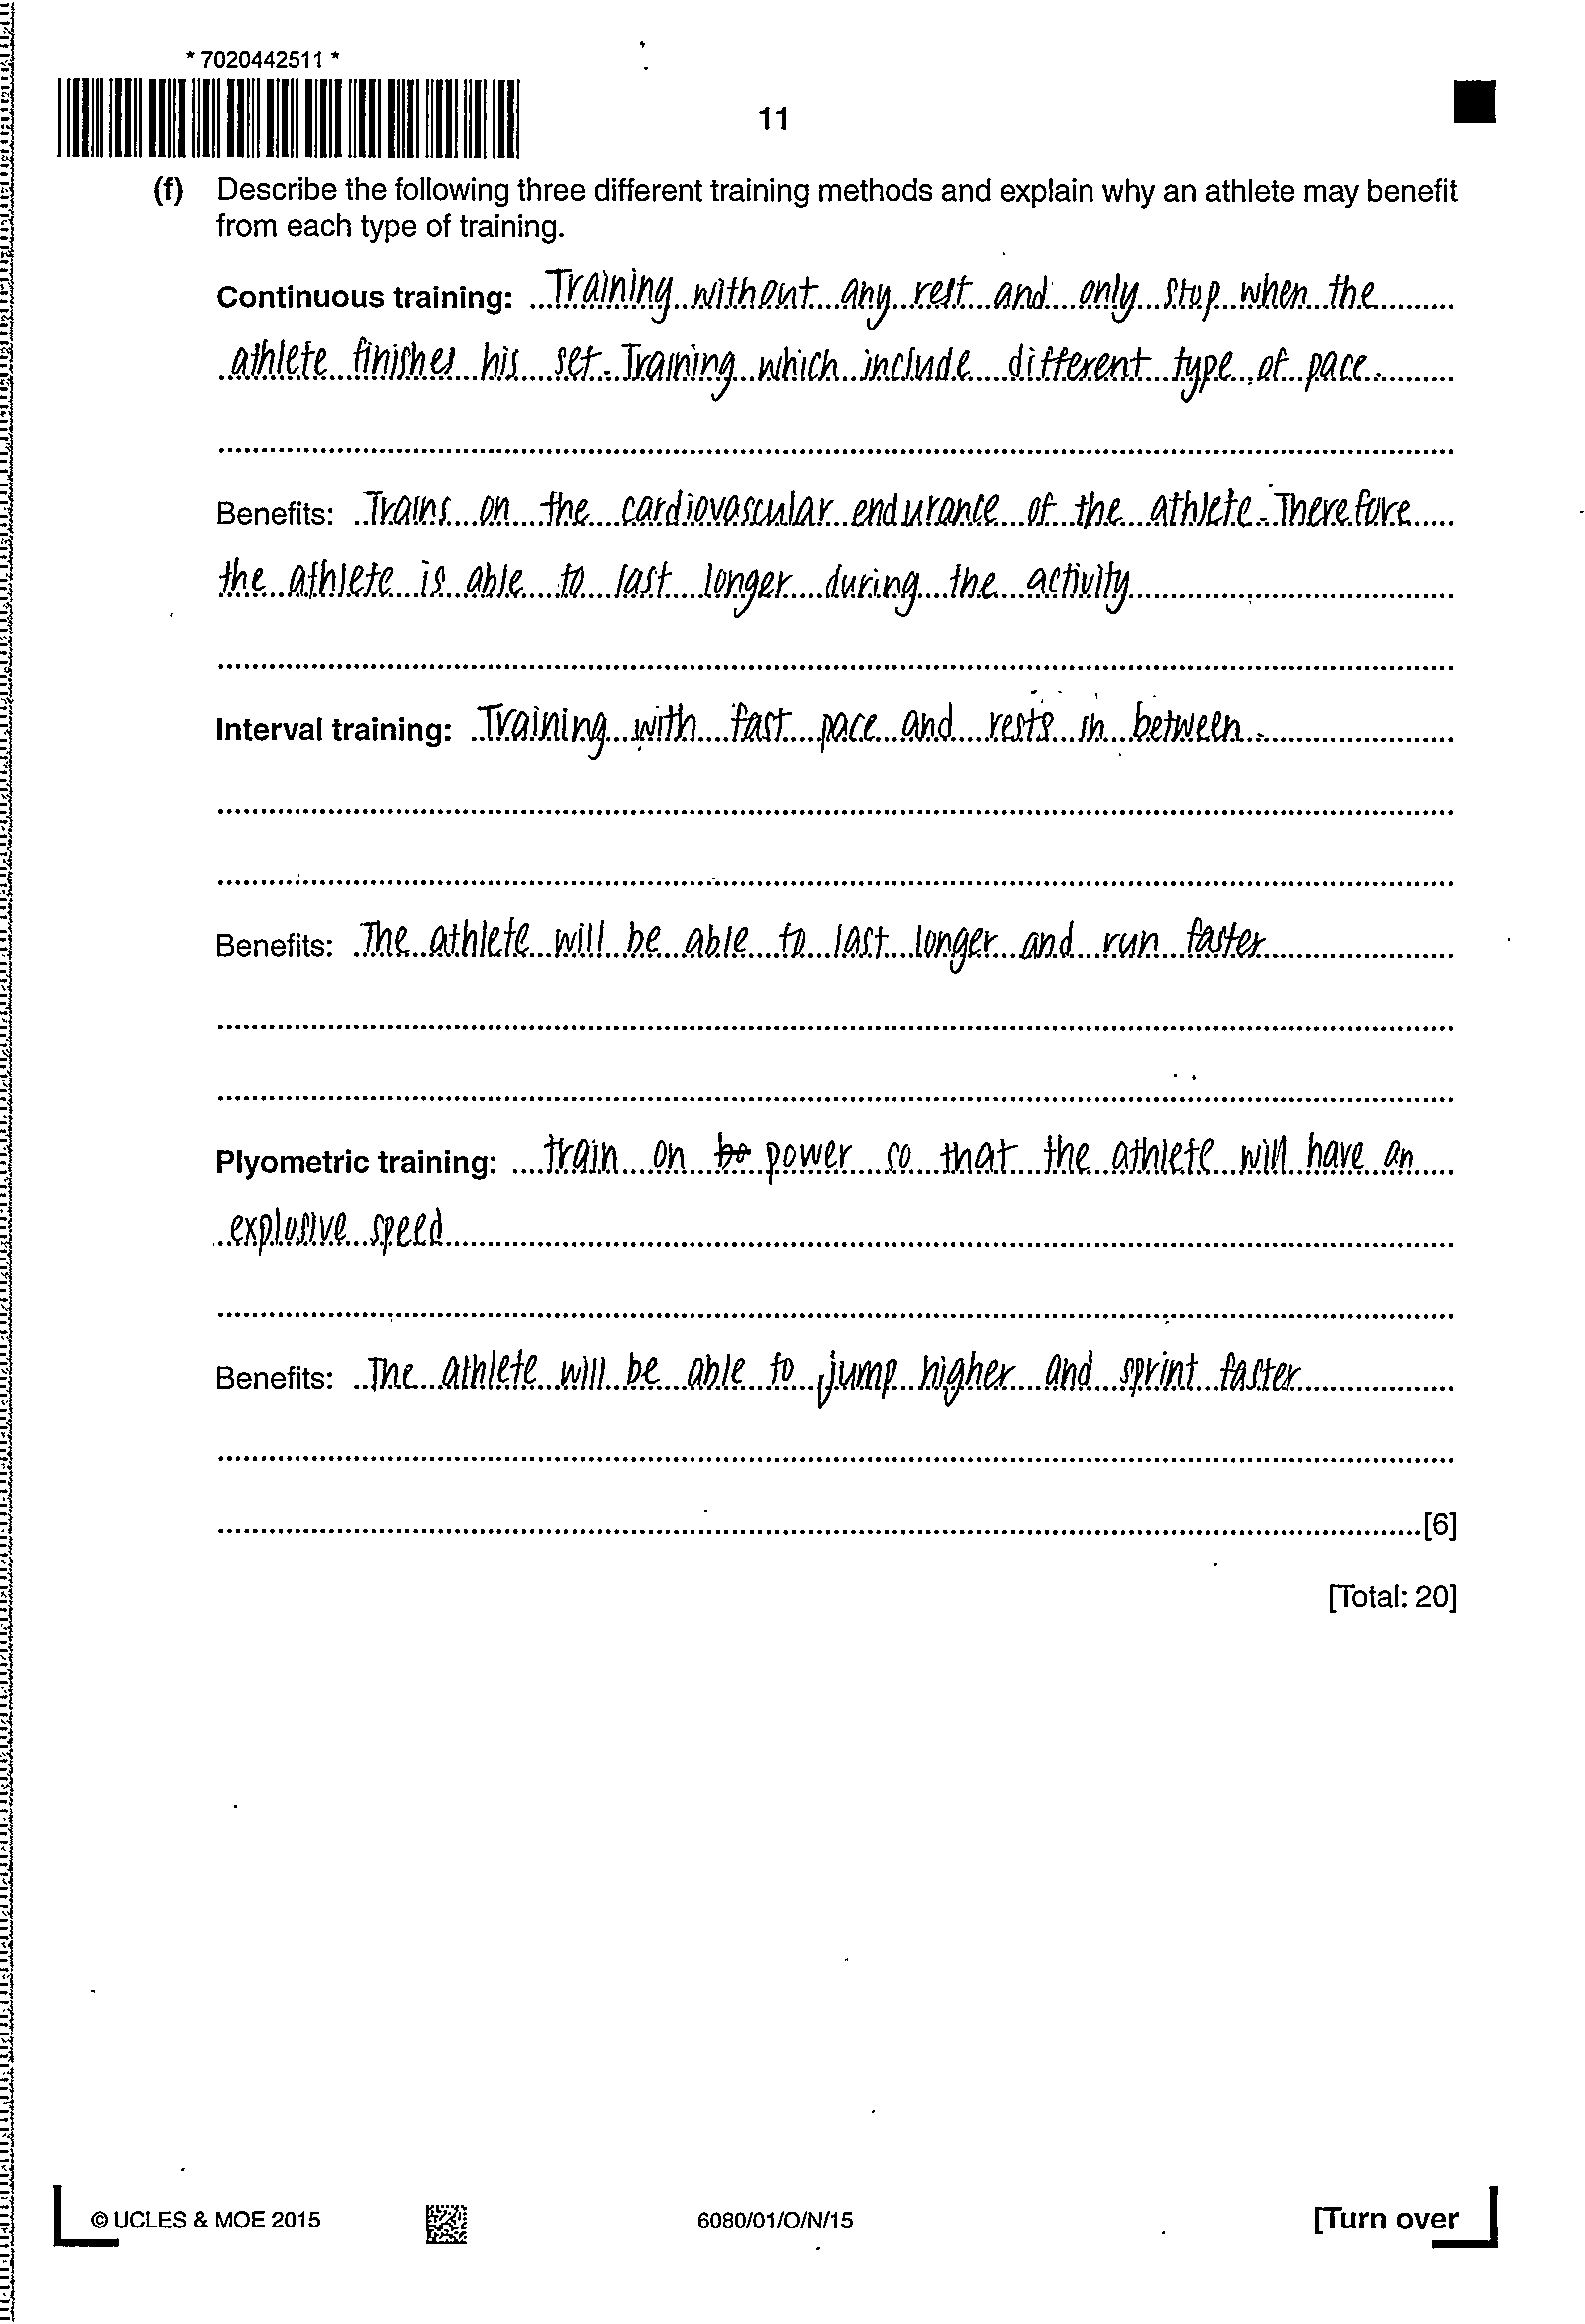 * 7020442511 *
11
(f) Describe the following three different training methods and explain why an athlete may benefit
from each type of training.
Continuous training: Training without any rest and only stop when the
athlete finishes his set. Training which include different type of pace.
Benefits: Trains on the cardiovascular endurance of the athlete. Therefore
the athlete is able to last longer during the activity
Interval training: Training with fast pace and rests in between.
Benefits: The athlete will be able to last longer and run faster
Plyometric training: train on bo power so that the athlete will have an
explosive speed
Benefits: The athlete will be able to jump higher and sprint faster
[6]
[Total: 20]
© UCLES & MOE 2015
6080/01/O/N/15
[Turn over